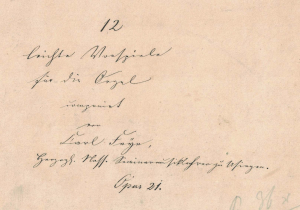 12
leichte Vorspiele
für die Orgel
componirt
von
Karl Faye,
Herzogl. Nass. Seminarmusiklehrer zu Usingen.
Opus 21.